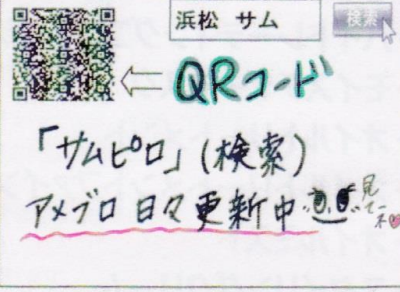 浜松 サム 検索
QRコード
「サムピロ」(検索)
アメブロ 日々更新中 見てネ